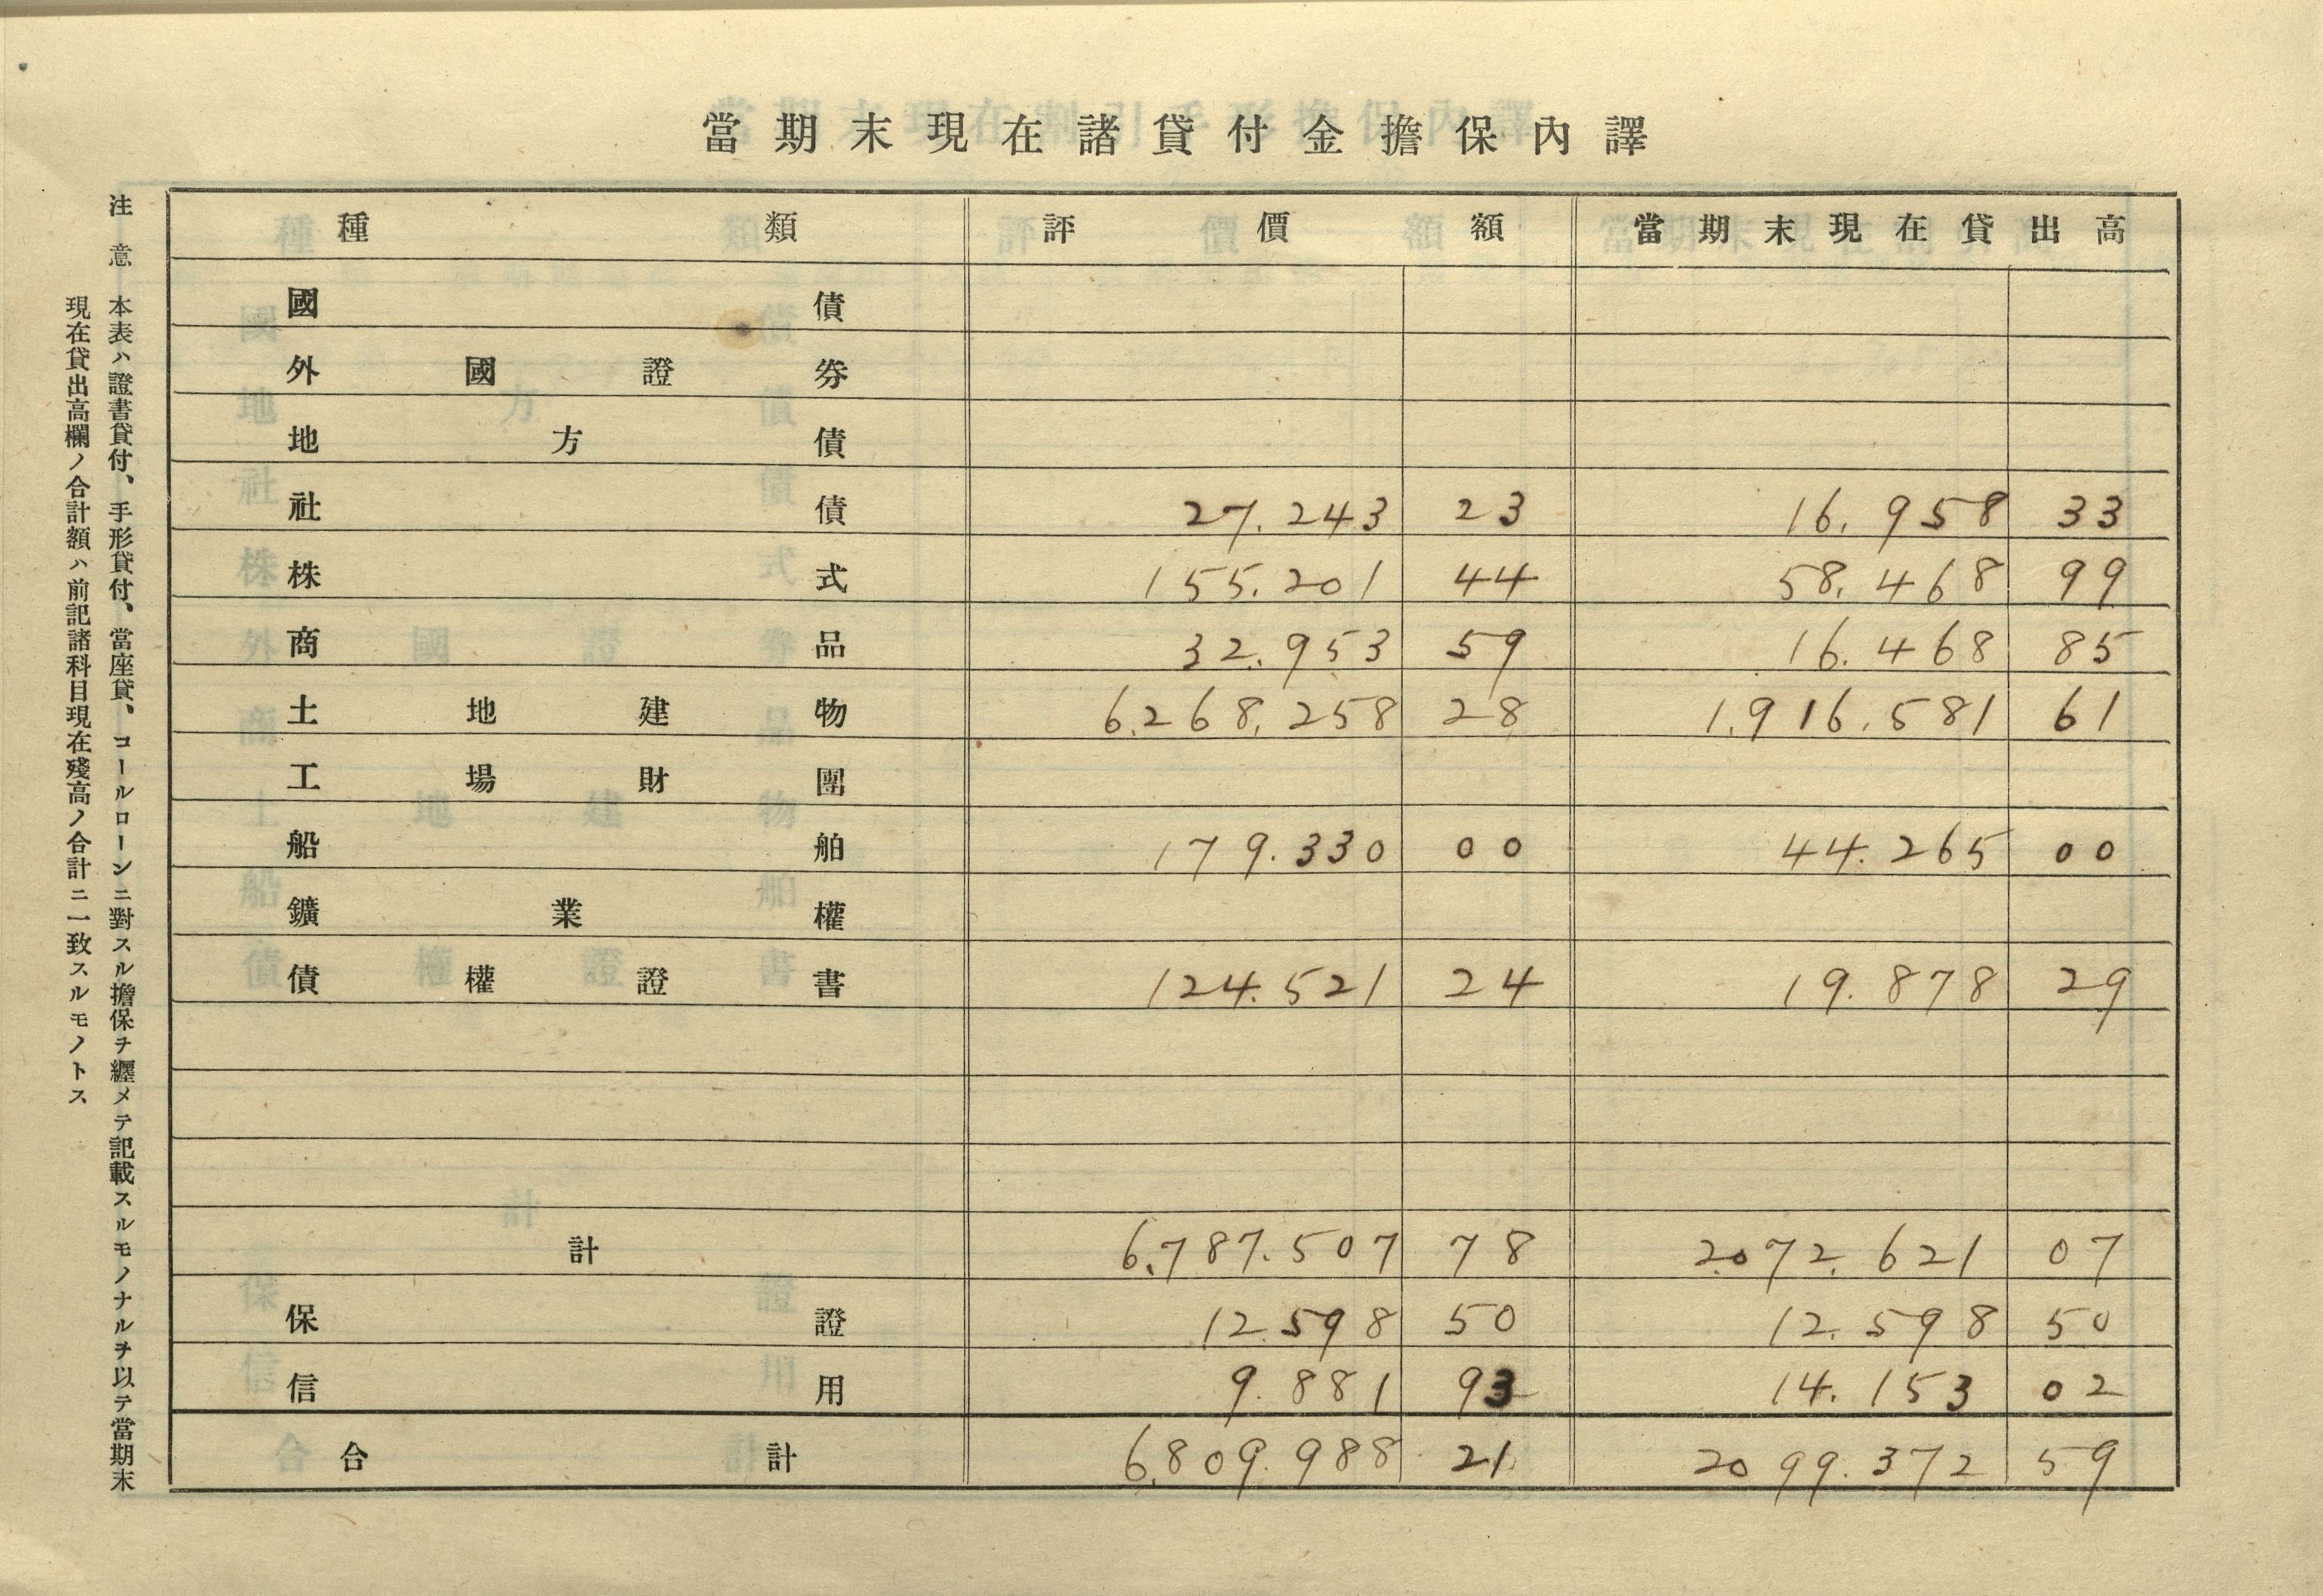 當期末現在諸貸付金擔保內譯
種類 評價額 當期末現在貸出高
國債
外國證券
地方債
社債 27.243 23 16.958 33
株式 155.201 44 58.468 99
商品 32.953 59 16.468 85
土地建物 6.268.258 28 1.916.581 61
工場財團
船舶 179.330 00 44.265 00
鑛業權
債權證書 124.521 24 19.878 29
計 6.787.507 78 2.072.621 07
保證 12.598 50 12.598 50
信用 9.881 93 14.153 02
合計 6.809.988 21 2099.372 59
注意 本表ハ證書貸付、手形貸付、當座貸、コールローンニ對スル擔保ヲ纒メテ記載スルモノナルヲ以テ當期末
現在貸出高欄ノ合計額ハ前記諸科目現在殘高ノ合計ニ一致スルモノトス